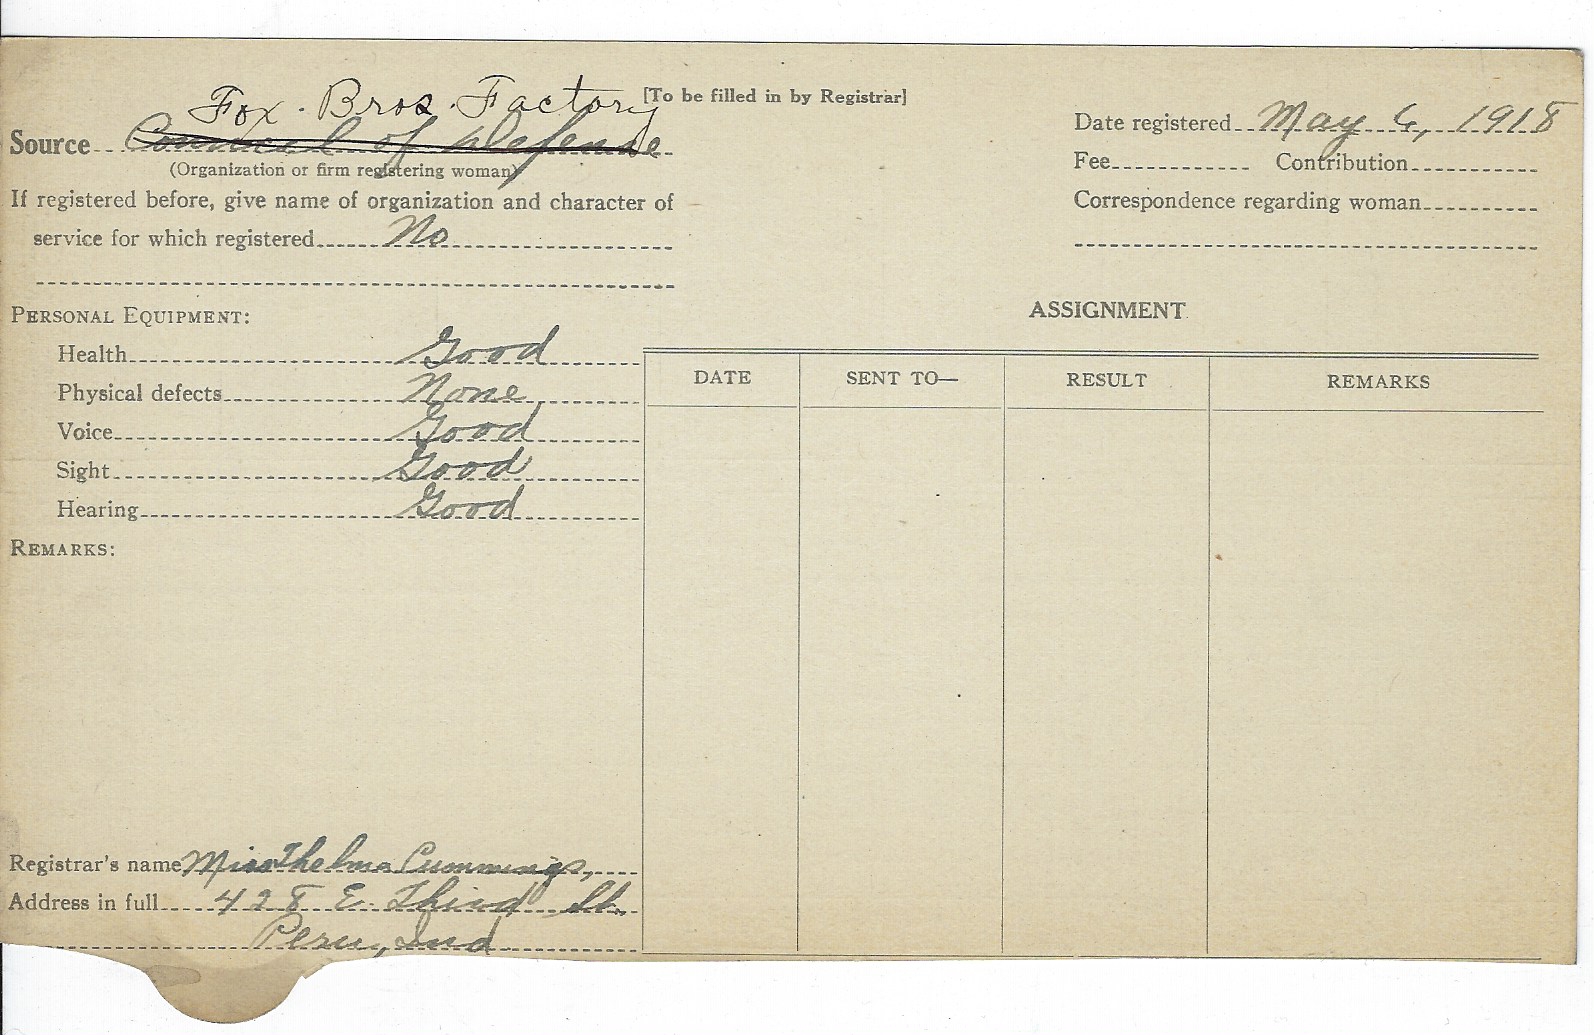 Fox. Bros. Factory [To be filled in by Registrar]
Source Council of Defense
(Organization or firm registering woman)
If registered before, give name of organization and character of
service for which registered No
Date registered May 6, 1918
Fee Contribution
Correspondence regarding woman
PERSONAL EQUIPMENT:
Health Good
Physical defects None
Voice Good
Sight Good
Hearing Good
REMARKS:
ASSIGNMENT
DATE SENT TO— RESULT REMARKS
Registrar's name Miss Thelma Cummings,
Address in full 428 E. Third St.
Peru, Ind